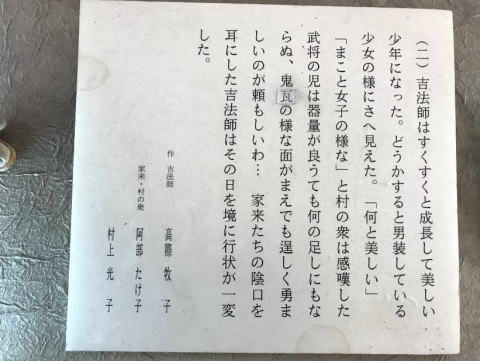 （二）吉法師はすくすくと成長して美しい
少年になった。どうかすると男装している
少女の様にさへ見えた。「何と美しい」
「まこと女子の様な」と村の衆は感嘆した
武将の児は器量が良うても何の足しにもな
らぬ、鬼瓦の様な面がまえでも逞しく勇ま
しいのが頼もしいわ… 家来たちの陰口を
耳にした吉法師はその日を境に行状が一変
した。
作 吉法師 高際牧子
家来・村の衆 阿部たけ子
村上光子